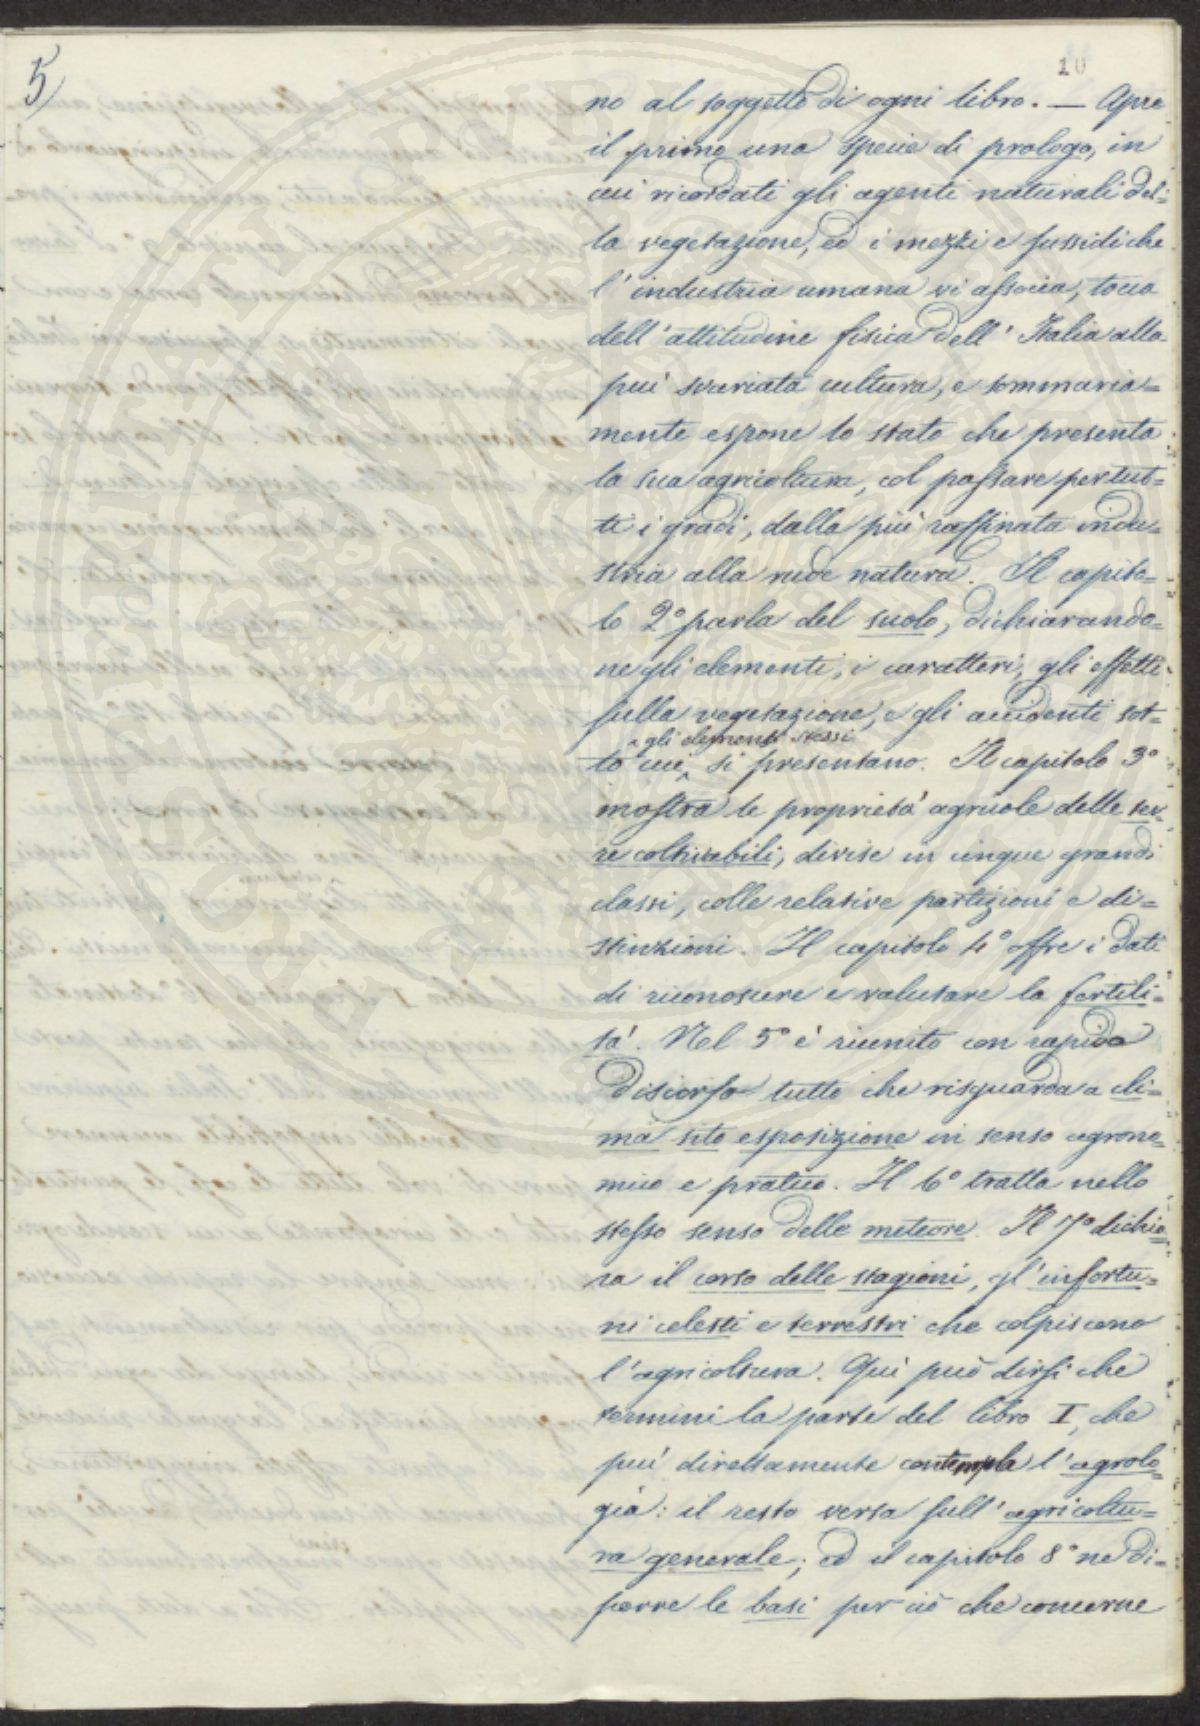 5)
10
no al soggetto di ogni libro. — Apre
il primo una specie di prologo, in
cui ricordati gli agenti naturali del=
la vegetazione, ed i mezzi e sussidi che
l'industria umana vi associa, tocca
dell'attitudine fisica dell'Italia alla
più svariata cultura, e sommaria=
mente espone lo stato che presenta
la sua agricoltura, col passare per tut=
ti i gradi, dalla più raffinata indu=
stria alla rude natura. Il capito=
lo 2° parla del suolo, dichiarando=
ne gli elementi, i caratteri, gli effetti
sulla vegetazione, e gli accidenti sot=
gli elementi stessi
to cui si presentano. Il capitolo 3°
mostra le proprietà agricole delle ter=
re coltivabili, divise in cinque grandi
classi, colle relative partizioni e di=
stinzioni. Il capitolo 4° offre i dati
di riconoscere e valutare la fertili=
tà. Nel 5° è riunito con rapido
discorso tutto che risguarda a cli=
ma sito esposizione in senso agrono=
mico e pratico. Il 6° tratta nello
stesso senso delle meteore. Il 7° dichia=
ra il corso delle stagioni, gl'infortu=
ni celesti e terrestri che colpiscono
l'agricoltura. Qui può dirsi che
termini la parte del libro I, che
più direttamente contempla l'agrolo=
gia: il resto versa sull'agricoltu=
ra generale; ed il capitolo 8° ne di=
scorre le basi per ciò che concerne